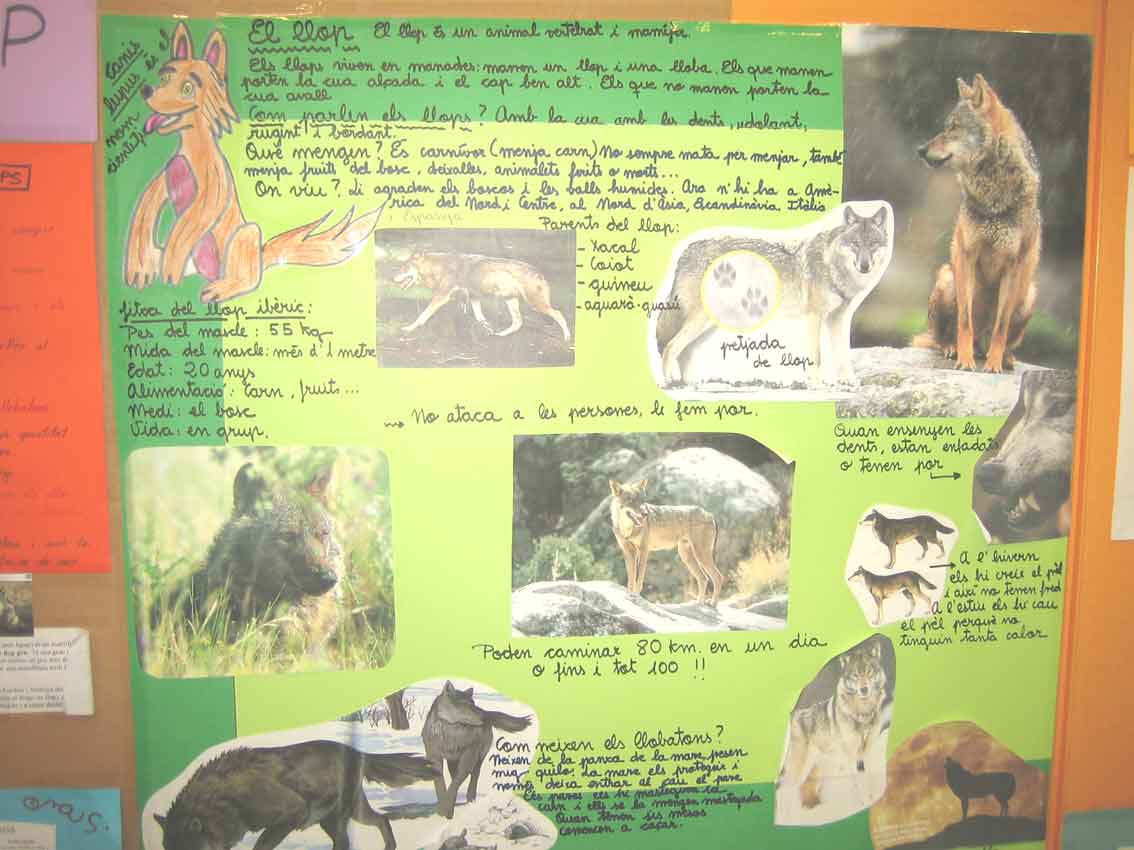 El llop El llop és un animal vertebrat i mamífer.
Els llops viven en manades: manen un llop i una lloba. Els que manen
porten la cua alçada i el cap ben alt. Els que no manen porten la
cua avall
Com parlen els llops? Amb la cua amb les dents, udolant,
rugint i bordant.
Què mengen? És carnívor (menja carn) No sempre mata per menjar, també
menja fruits del bosc, deixalles, animalets ferits o morts...
On viu? Li agraden els boscos i les valls humides. Ara n'hi ha a Amè-
rica del Nord i Centre, al Nord d'Àsia, Escandinàvia, Itàlia
i Espanya
canis
lupus és el
nom
científic
Parents del llop:
- Xacal
- Coiot
- guineu
- aguarà-guasú
petjada
de llop
fitxa del llop ibèric:
Pes del mascle: 55 kg
Mida del mascle: més d'1 metre
Edat: 20 anys
Alimentació: Carn, fruits...
Medi: el bosc
Vida: en grup.
No ataca a les persones, li fem por.
Quan ensenyen les
dents, estan enfadats
o tenen por
A l'hivern
els hi creix el pèl
i així no tenen fred
A l'estiu els hi cau
el pèl perquè no
tinguin tanta calor
Poden caminar 80 km. en un dia
o fins i tot 100 !!
Com neixen els llobatons?
Neixen de la panxa de la mare, pesen
mig quilo. La mare els protegeix i
només deixa entrar al cau el pare
Els pares els hi masteguen la
carn i ells se la mengen mastegada
Quan tenen sis mesos
comencen a caçar.
P
PS